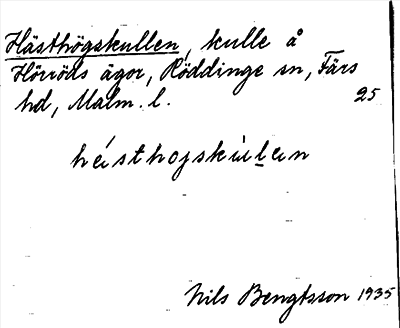 Hästhögskullen, kulle å
Hörröds ägor, Röddinge sn, Färs
hd, Malm. l. 25
hästhojskulen
Nils Bengtsson 1935